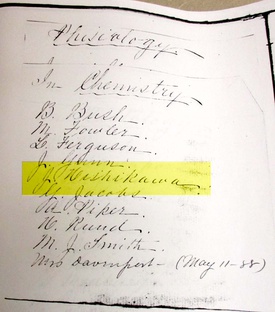 Phisiology
In Chemistry
B. Bush
M. Fowler.
L. Ferguson
J. Glenn
J. Hishikawa
Jacobs.
Piper
H. Rund
M. J. Smith
Mrs Davenport - (May 11-88)